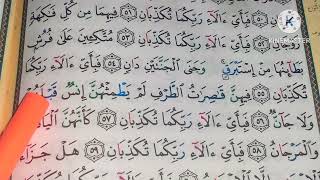 ۝٥٠ فَبِأَيِّ ءَالَآءِ رَبِّكُمَا تُكَذِّبَانِ ۝٥١ فِيهِمَا مِن كُلِّ فَٰكِهَةٍ
زَوْجَانِ ۝٥٢ فَبِأَيِّ ءَالَآءِ رَبِّكُمَا تُكَذِّبَانِ ۝٥٣ مُتَّكِـِٔينَ عَلَىٰ فُرُشٍۭ
بَطَآئِنُهَا مِنْ إِسْتَبْرَقٍ ۚ وَجَنَى ٱلْجَنَّتَيْنِ دَانٍ ۝٥٤ فَبِأَيِّ ءَالَآءِ رَبِّكُمَا
تُكَذِّبَانِ ۝٥٥ فِيهِنَّ قَٰصِرَٰتُ ٱلطَّرْفِ لَمْ يَطْمِثْهُنَّ إِنسٌ قَبْلَهُمْ
وَلَا جَآنٌّ ۝٥٦ فَبِأَيِّ ءَالَآءِ رَبِّكُمَا تُكَذِّبَانِ ۝٥٧ كَأَنَّهُنَّ
وَٱلْمَرْجَانُ ۝٥٨ فَبِأَيِّ ءَالَآءِ رَبِّكُمَا تُكَذِّبَانِ ۝٥٩ هَلْ جَزَآءُ
KINEMASTER